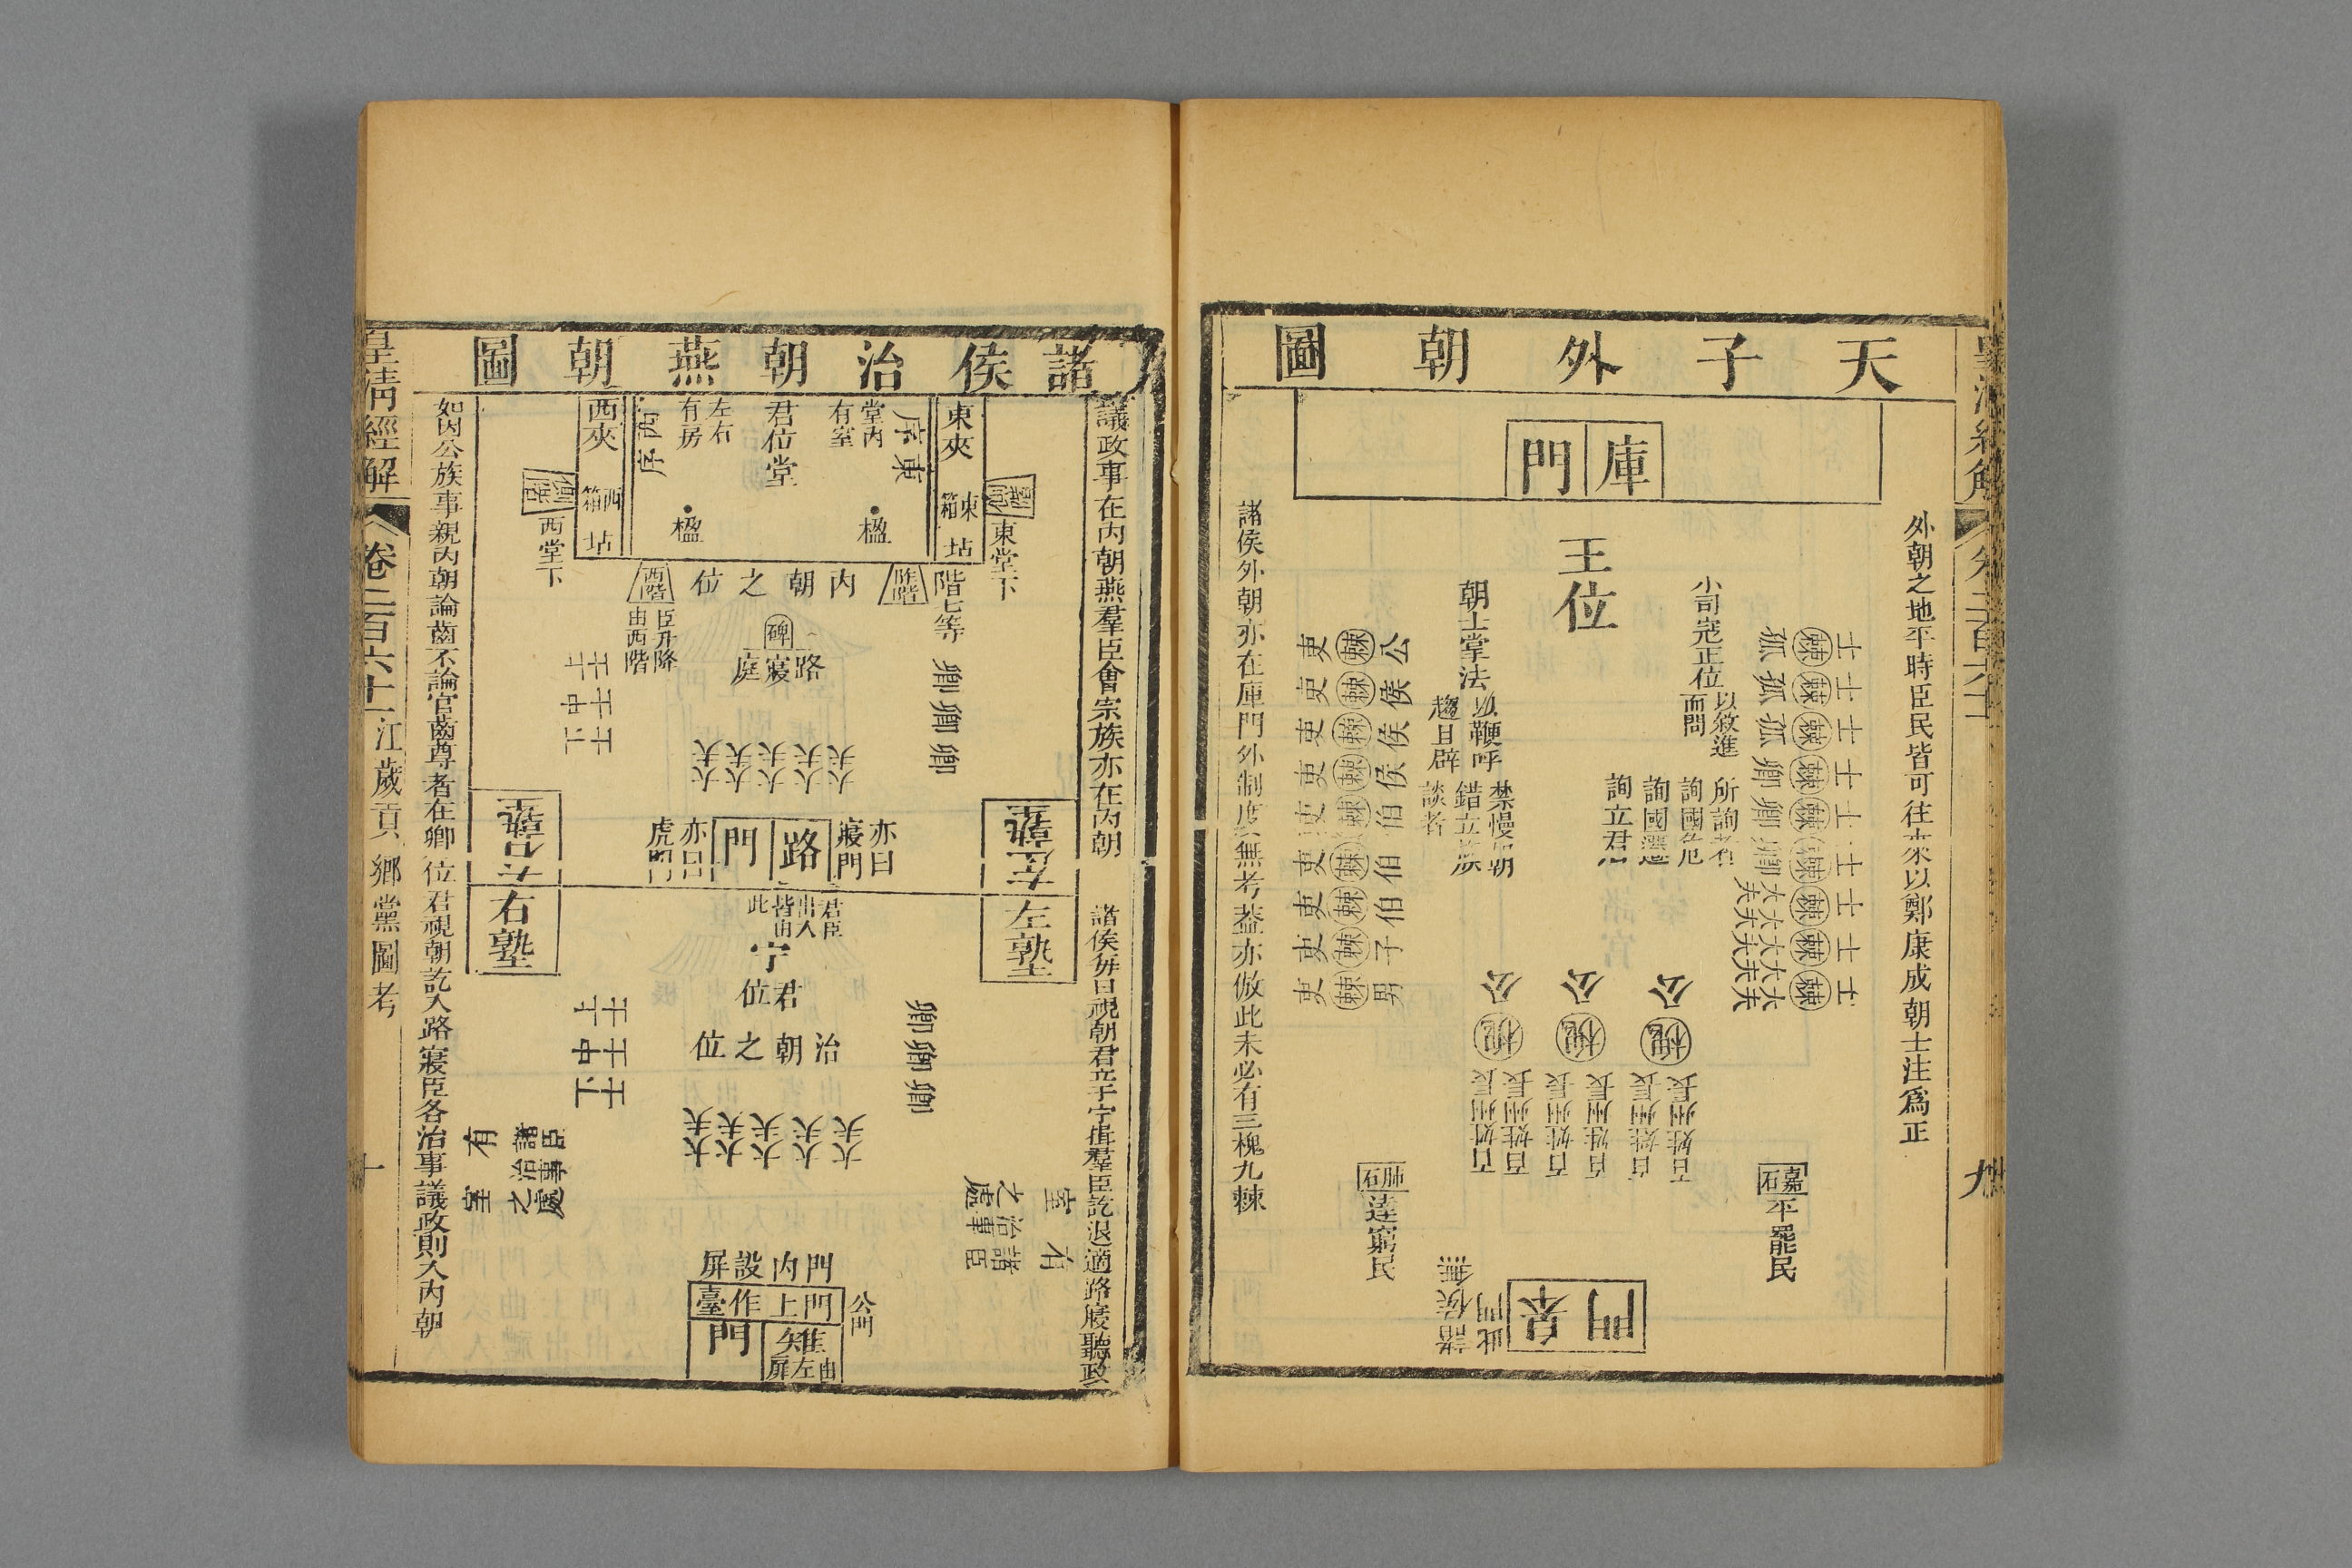 天子外朝圖
外朝之地平時臣民皆可往來以鄭康成朝士注爲正
庫門
王位
小司寇正位
以敘進
而問
所詢者
詢國危
詢國遷
詢立君
朝士掌法
以鞭呼
趨且辟
禁慢朝
錯立族
談者
士士士士士士士士士
棘棘棘棘棘棘棘棘棘
孤孤孤卿卿卿大夫大夫大夫
公侯侯侯伯伯伯子男
棘棘棘棘棘棘棘棘棘
吏吏吏吏吏吏吏吏吏
公公公
槐槐槐
州長
百姓
州長
百姓
州長
百姓
嘉石
平罷民
肺石
達窮民
皋門
此門
諸侯無
諸侯外朝亦在庫門外制度無考蓋亦倣此未必有三槐九棘
九
諸侯治朝燕朝圖
議政事在內朝燕羣臣會宗族亦在內朝
諸侯每日視朝君立于宁揖羣臣訖退適路寢聽政
東夾
東箱
坫
東堂下
東序
堂內
有室
君位堂
左右
有房
西序
楹
楹
西夾
西箱
坫
西堂下
階七等
阼階
內朝之位
西階
臣升降
由西階
碑
路寢庭
卿卿卿
上士
中士
下士
大夫大夫大夫大夫大夫
左塾
左塾
右塾
右塾
亦曰
寢門
路門
亦曰
虎門
君臣
出入
皆由
此
宁
君位
治朝之位
卿卿卿
上士
中士
下士
大夫大夫大夫大夫大夫
有室
諸臣
治事
之處
有室
諸臣
治事
之處
門內設屏
門上作臺
公門
雉門
由左屏
如因公族事親內朝論齒不論官齒尊者在卿位君視朝訖入路寢臣各治事議政則入內朝
皇清經解
卷二百六十一
江歲貢鄉黨圖考
十